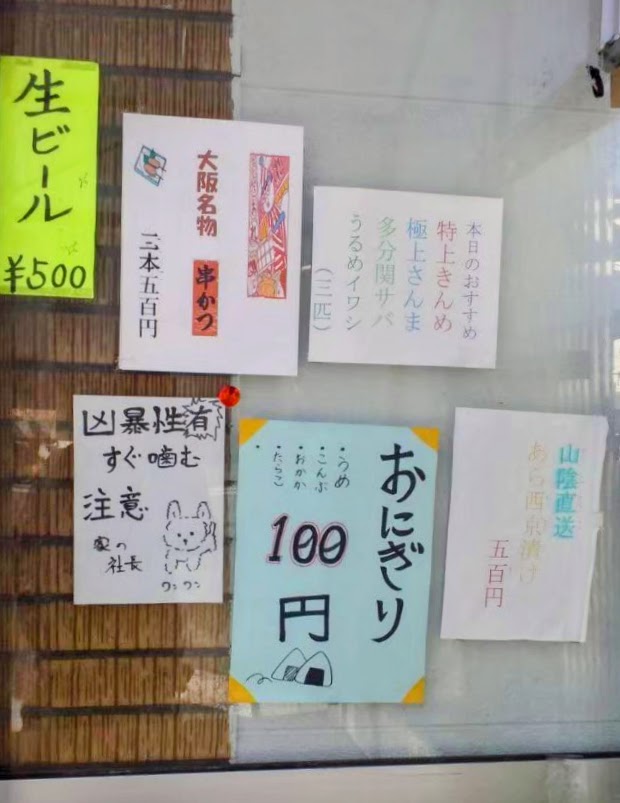 生ビール
¥500
大阪名物
串かつ
三本五百円
本日のおすすめ
特上きんめ
極上さんま
多分関サバ
うるめイワシ
(三匹)
凶暴性有
すぐ噛む
注意
家の
社長
ワンワン
おにぎり
・うめ
・こんぶ
・おかか
・たらこ
100
円
山陰直送
あら西京漬け
五百円